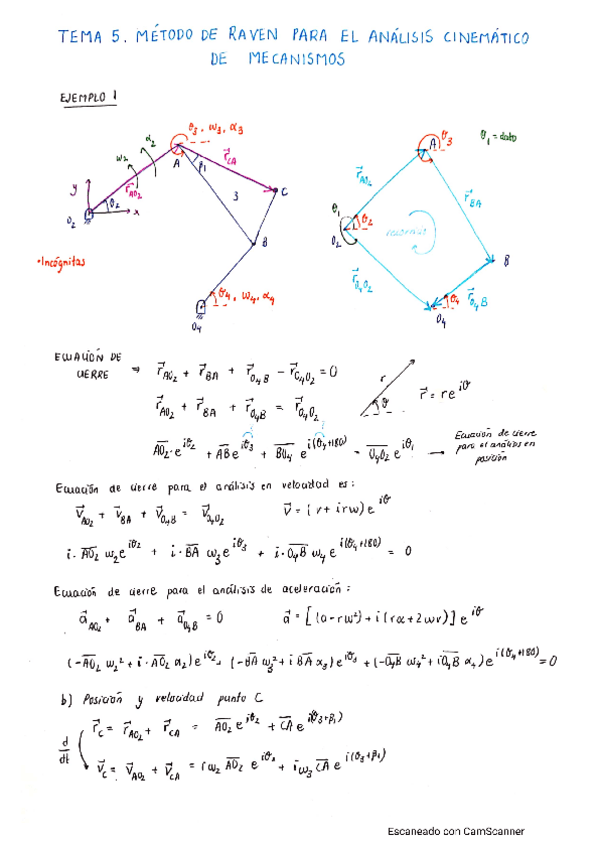 TEMA 5. MÉTODO DE RAVEN PARA EL ANÁLISIS CINEMÁTICO
DE MECANISMOS
EJEMPLO 1
θ₃, ω₃, α₃
α₂
ω₂
A
β₁
r⃗_CA
r⃗_AO₂
θ₂
y
x
O₂
3
C
B
•Incógnitas
θ₄, ω₄, α₄
O₄
θ₁ = dato
A
θ₃
r⃗_AO₂
r⃗_BA
θ₁
θ₂
O₂
B
r⃗_O₄O₂
θ₄
r⃗_O₄B
O₄
ECUACIÓN DE
CIERRE ⇒ r⃗_AO₂ + r⃗_BA + r⃗_O₄B - r⃗_O₄O₂ = 0
r
θ
r⃗ = re^iθ
r⃗_AO₂ + r⃗_BA + r⃗_O₄B = r⃗_O₄O₂
AO₂·e^iθ₂ + AB e^iθ₃ + BO₄ e^i(θ₄+180) = O₄O₂ e^iθ₁ → Ecuación de cierre
para el análisis en
posición
Ecuación de cierre para el análisis en velocidad es:
v⃗_AO₂ + v⃗_BA + v⃗_O₄B = v⃗_O₄O₂ v⃗ = (r + irω) e^iθ
i·AO₂ ω₂e^iθ₂ + i·BA ω₃e^iθ₃ + i·O₄B ω₄ e^i(θ₄+180) = 0
Ecuación de cierre para el análisis de aceleración:
a⃗_AO₂ + a⃗_BA + a⃗_O₄B = 0 a⃗ = [(a-rω²)+i(rα+2ωv)] e^iθ
(-AO₂ ω₂² + i·AO₂ α₂)e^iθ₂ + (-BA ω₃² + i BA α₃)e^iθ₃ + (-O₄B ω₄² + iO₄B α₄)e^i(θ₄+180) = 0
b) Posición y velocidad punto C
r⃗_C = r⃗_AO₂ + r⃗_CA = AO₂ e^iθ₂ + CA e^i(θ₃+β₁)
d/dt
v⃗_C = v⃗_AO₂ + v⃗_CA = iω₂ AO₂ e^iθ₂ + iω₃ CA e^i(θ₃+β₁)
Escaneado con CamScanner